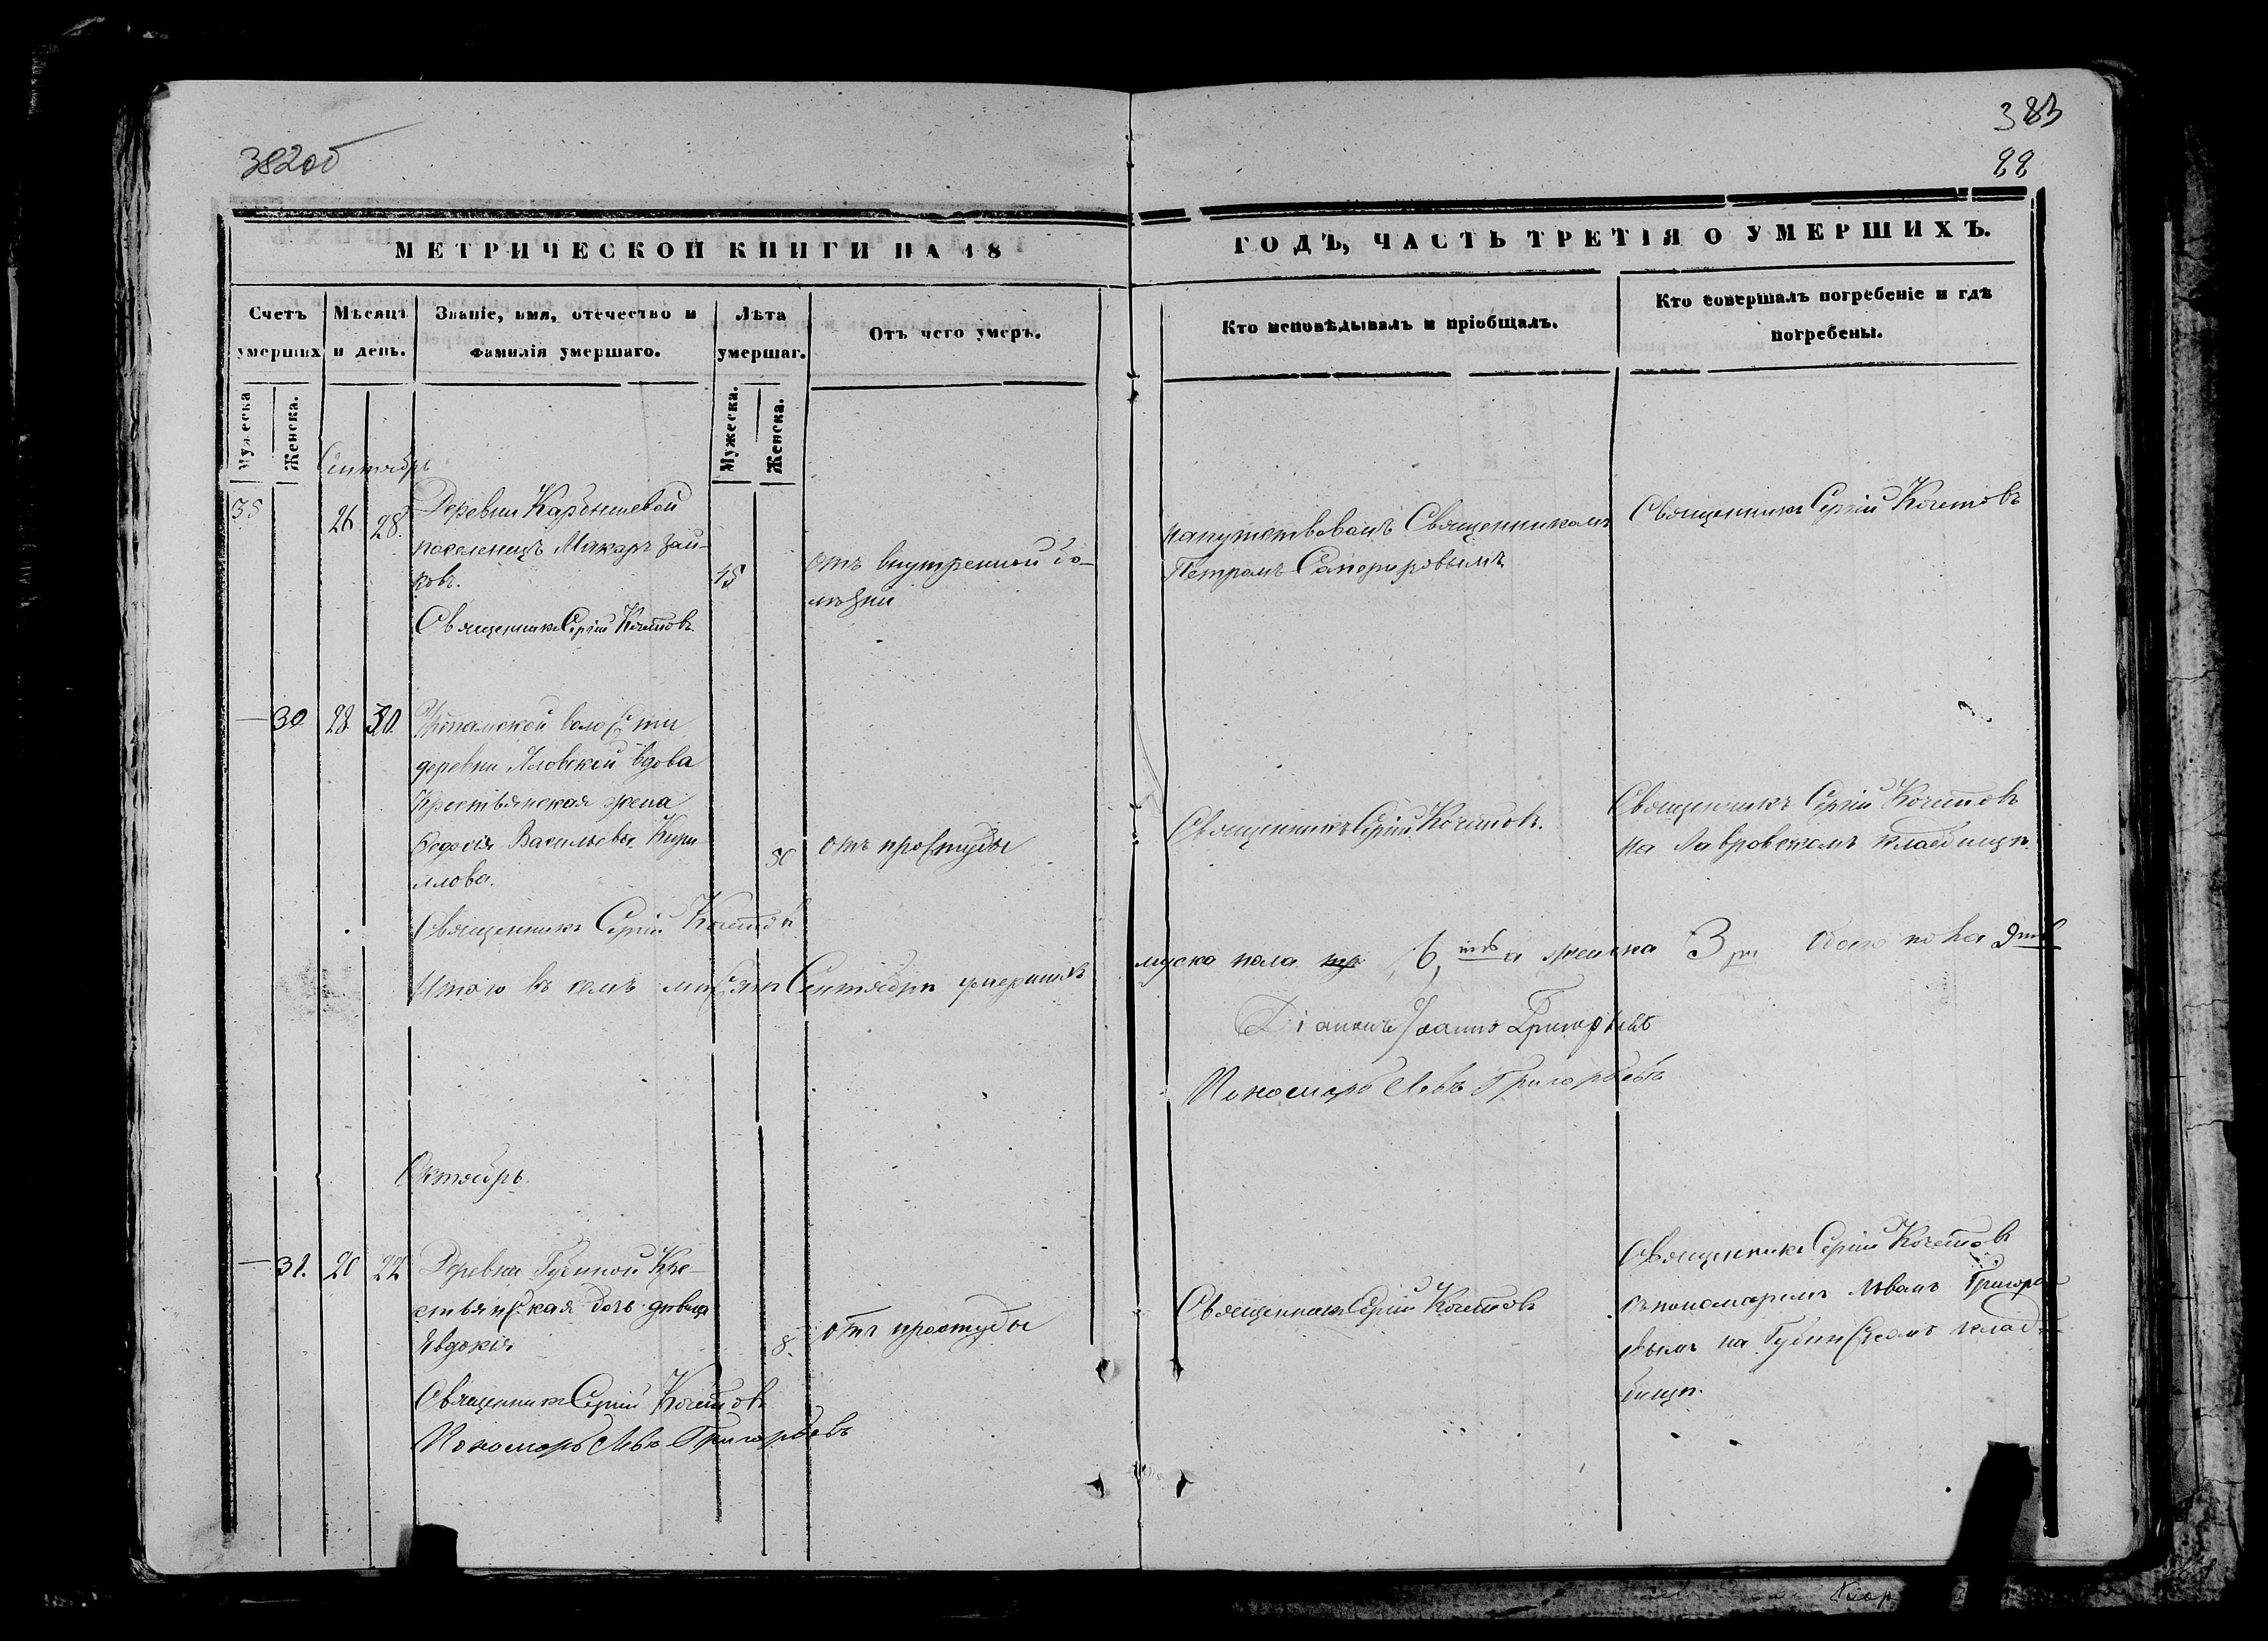 382об
383
88
МЕТРИЧЕСКОЙ КНИГИ НА 18
ГОДЪ, ЧАСТЬ ТРЕТІЯ О УМЕРШИХЪ.
Счетъ умершихъ
Мѣсяцъ и день.
Званіе, имя, отечество и фамилія умершаго.
Лѣта умершаг.
Отъ чего умеръ.
Кто исповѣдывалъ и пріобщалъ.
Кто совершалъ погребеніе и гдѣ погребены.
Мужеска
Женска.
Мужеска.
Женска.
Сентябрь
35
26
28.
Деревни Карбышевой
поселенецъ Макаръ Зай-
ковъ.
45
отъ внутренной бо-
лѣзни
напутствованъ Священникомъ
Петромъ
Священникъ Сергій Кочетовъ
Священникъ Сергій Кочетовъ.
—
30
28.
30.
волости
деревни Яловской вдова
Крестьянская жена
Ѳедосія Васильева Кири-
лова.
50
отъ простуды
Священникъ Сергій Кочетовъ.
Священникъ Сергій Кочетовъ
на Лавровскомъ кладбищѣ.
Священникъ Сергій Кочетовъ
Итого въ семъ мѣсяцѣ Сентябрѣ умершихъ
муска пола 6, а женска 3 ри Обоего пола 9
Діаконъ Іоаннъ
Пономарь Левъ Григорьевъ
Октябрь.
—
31.
20
22
Деревни Губиной Кре-
стьянская дочь дѣвица
Евдокія
8.
отъ простуды
Священникъ Сергій Кочетовъ
Священникъ Сергій Кочетовъ
съ пономаремъ Львомъ Григорь
евымъ на Губинскомъ клад-
бищѣ.
Священникъ Сергій Кочетовъ
Пономарь Левъ Григорьевъ